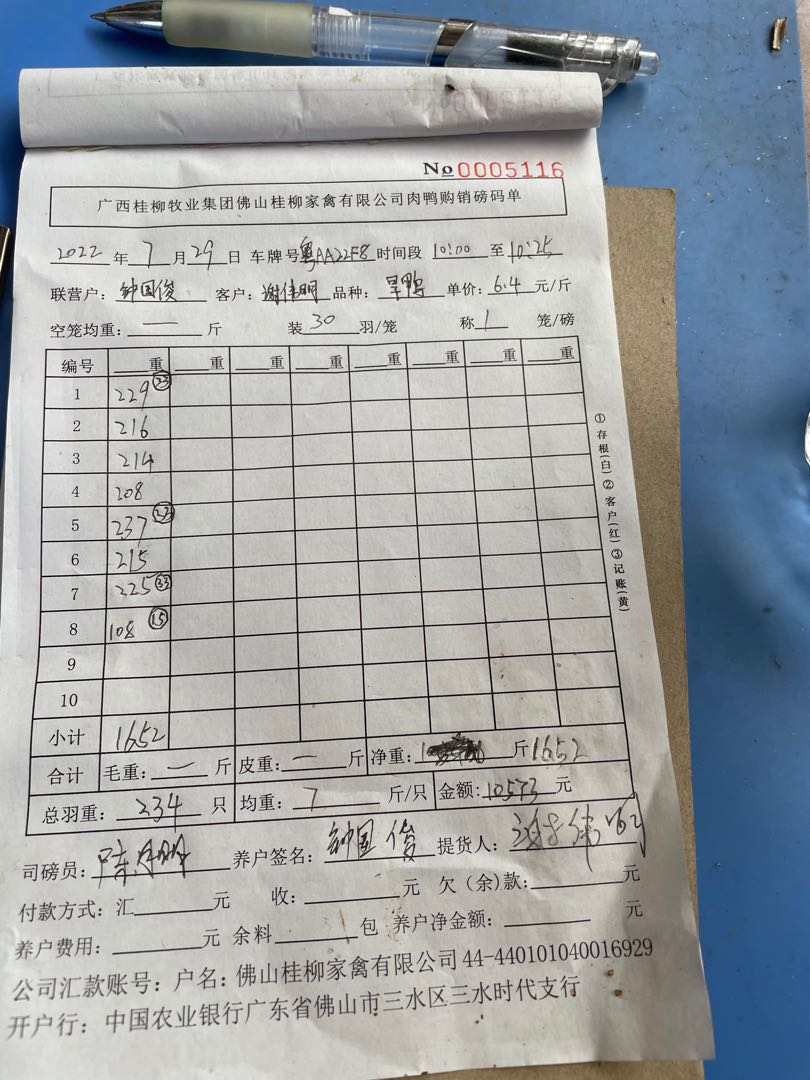 No 0005116
广西桂柳牧业集团佛山桂柳家禽有限公司肉鸭购销磅码单
2022 年 7 月 29 日 车牌号 粤AA22F8 时间段 10:00 至 10:25
联营户: 钟国俊 客户: 谢伟明 品种: 旱鸭 单价: 6.4 元/斤
空笼均重: — 斤 装 30 羽/笼 称 1 笼/磅
编号 重 重 重 重 重 重 重 重
1 229 33
2 216
3 214
4 208
5 237 33
6 215
7 225 33
8 108 15
9
10
小计 1652
合计 毛重: — 斤 皮重: — 斤 净重: 斤 1652
总羽重: 234 只 均重: 7 斤/只 金额: 10573 元
司磅员: 养户签名: 钟国俊 提货人: 谢伟明
付款方式: 汇 元 收: 元 欠(余)款: 元
养户费用: 元 余料 包 养户净金额: 元
公司汇款账号: 户名: 佛山桂柳家禽有限公司 44-440101040016929
开户行: 中国农业银行广东省佛山市三水区三水时代支行
①存根(白)②客户(红)③记账(黄)